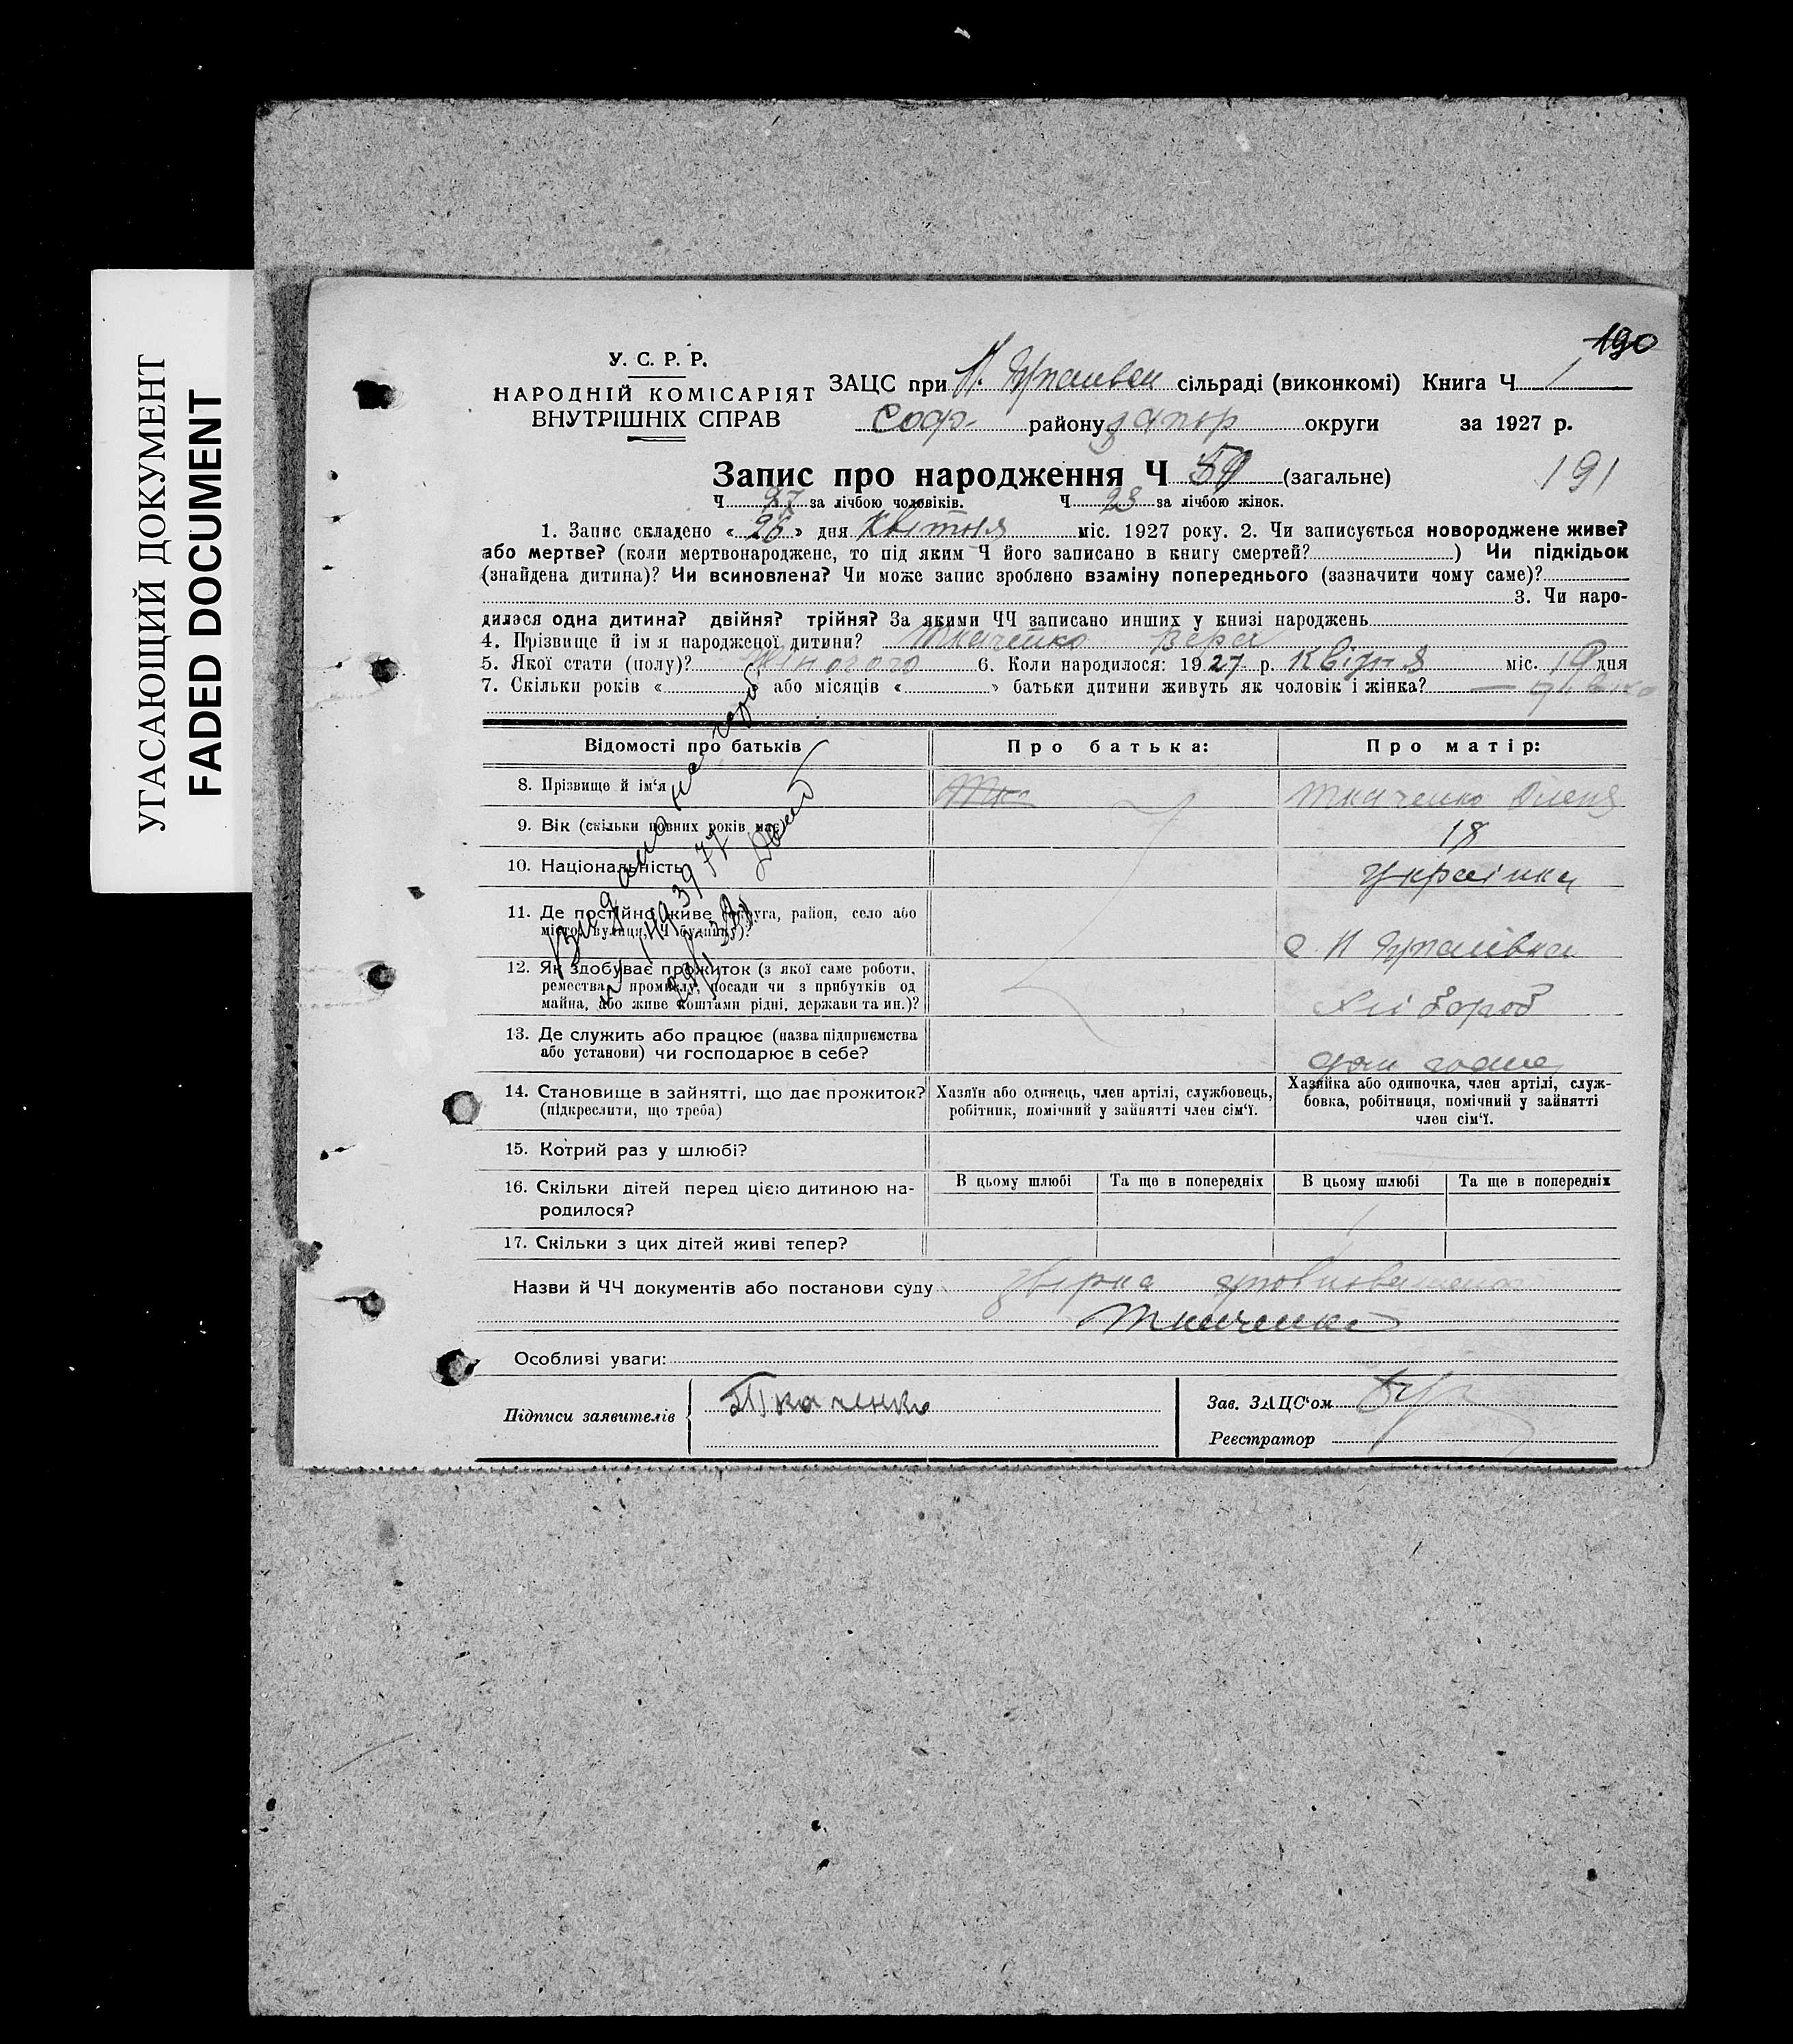 УГАСАЮЩИЙ ДОКУМЕНТ
FADED DOCUMENT
190
У. С. Р. Р.
НАРОДНІЙ КОМІСАРІЯТ
ВНУТРІШНІХ СПРАВ
ЗАЦС при сільраді (виконкомі) Книга Ч 1
Соф. району Запор округи за 1927 р.
Запис про народження Ч (загальне) 191
Ч 27 за лічбою чоловіків. Ч 23 за лічбою жінок.
1. Запис складено « 26 » дня Квітня міс. 1927 року. 2. Чи записується новороджене живе?
або мертве? (коли мертвонароджене, то під яким Ч його записано в книгу смертей? ) Чи підкідьок
(знайдена дитина)? Чи всиновлена? Чи може запис зроблено взаміну попереднього (зазначити чому саме)?
3. Чи наро-
дилася одна дитина? двійня? трійня? За якими ЧЧ записано инших у книзі народжень
4. Прізвище й ім'я народженої дитини? Ткаченко Вера
5. Якої стати (полу)? Жіночого 6. Коли народилося: 1927 р. Квітня міс. дня
7. Скільки років « » або місяців « » батьки дитини живуть як чоловік і жінка? —
Відомості про батьків Про батька: Про матір:
8. Прізвище й ім'я Тка Ткаченко Олена
9. Вік (скільки повних років має) 18
10. Національність Українка
11. Де постійно живе (округа, район, село або
місто, вулиця, Ч будинку)?
12. Як здобуває прожиток (з якої саме роботи,
ремества, промислу, посади чи з прибутків од
майна, або живе коштами рідні, держави та ин.)? Хлібороб
13. Де служить або працює (назва підприємства
або установи) чи господарює в себе?
14. Становище в зайнятті, що дає прожиток?
(підкреслити, що треба)
Хазяїн або одинець, член артілі, службовець,
робітник, помічний у зайнятті член сім'ї.
Хазяйка або одиночка, член артілі, служ-
бовка, робітниця, помічний у зайнятті
член сім'ї.
15. Котрий раз у шлюбі?
16. Скільки дітей перед цією дитиною на-
родилося?
В цьому шлюбі Та ще в попередніх В цьому шлюбі Та ще в попередніх
17. Скільки з цих дітей живі тепер?
Назви й ЧЧ документів або постанови суду
Ткаченко
Особливі уваги:
Підписи заявителів Ткаченко
Зав. ЗАЦС'ом
Реєстратор